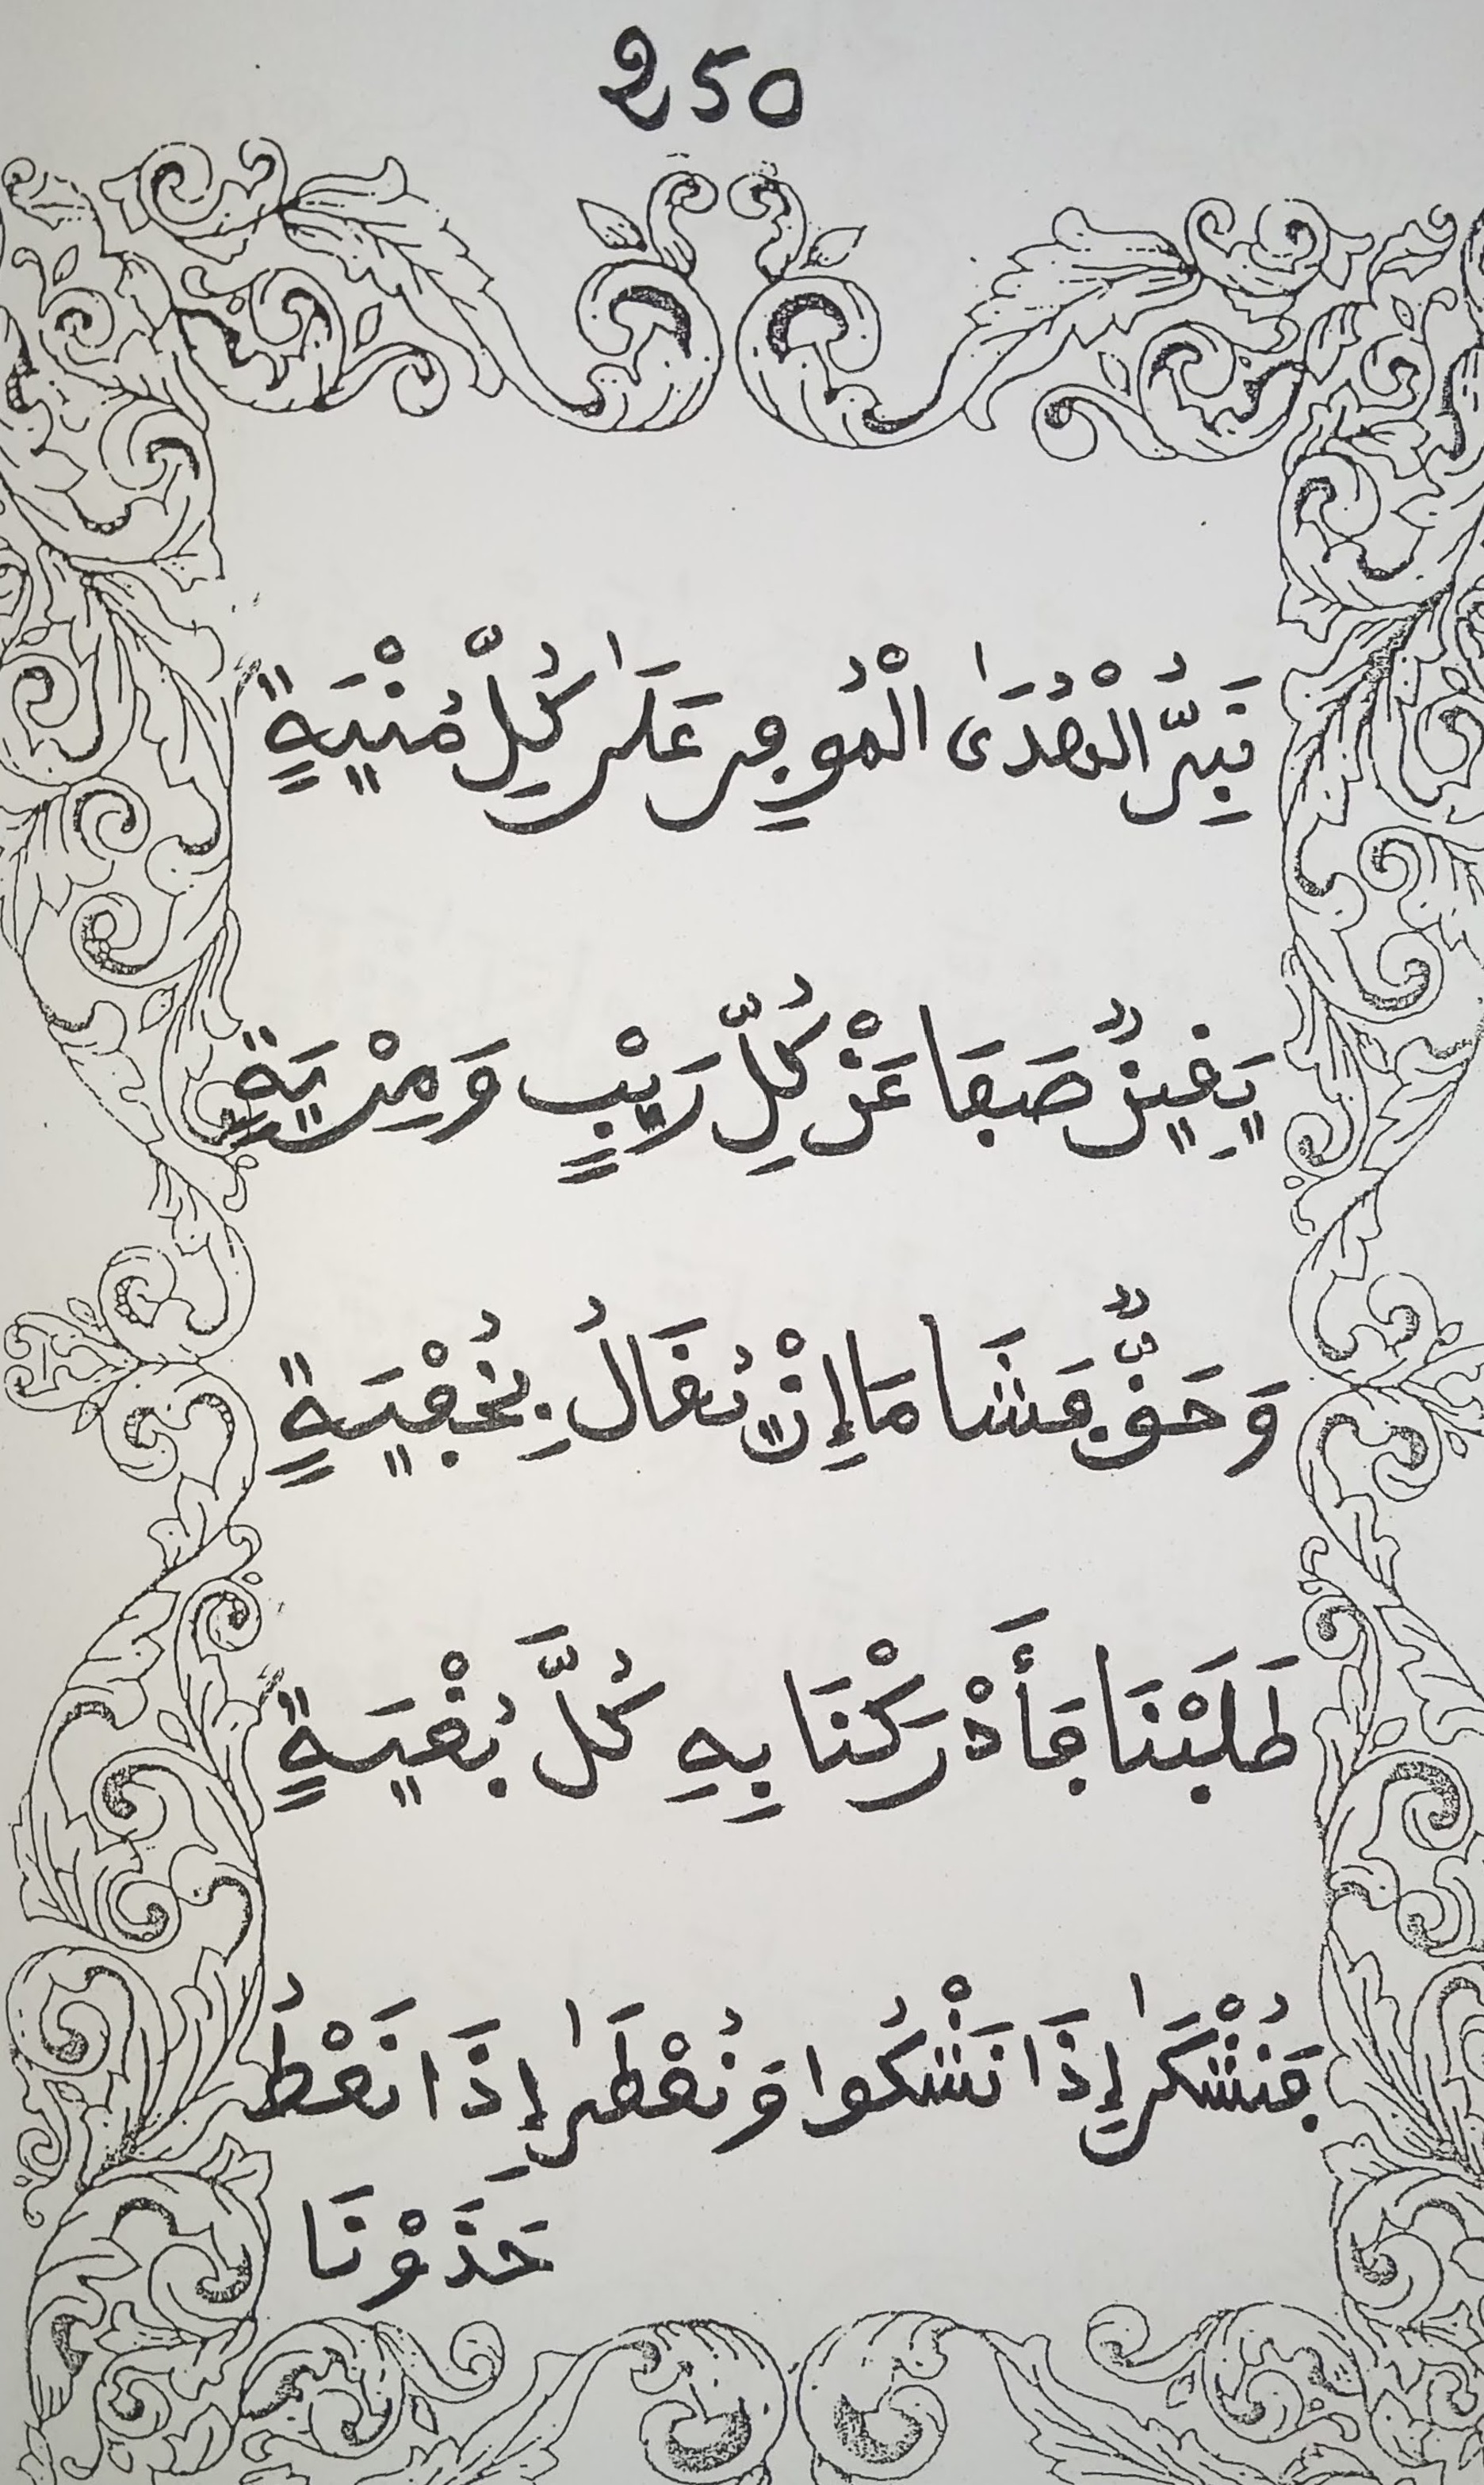 250
نَبِرُّ الْهُدَى الْمُوفِى عَلَى كُلِّ مُنْيَةٍ
يَقِينٌ صَفَا عَنْ كُلِّ رَيْبٍ وَمِرْيَةٍ
وَحَقٌّ فَشَا مَا إِنْ يُقَالُ بِخُفْيَةٍ
طَلَبْنَا فَأَدْرَكْنَا بِهِ كُلَّ بُغْيَةٍ
فَنُشْكَى إِذَا نَشْكُوا وَنُعْطَى إِذَا نَعْطُ
حَذَوْنَا